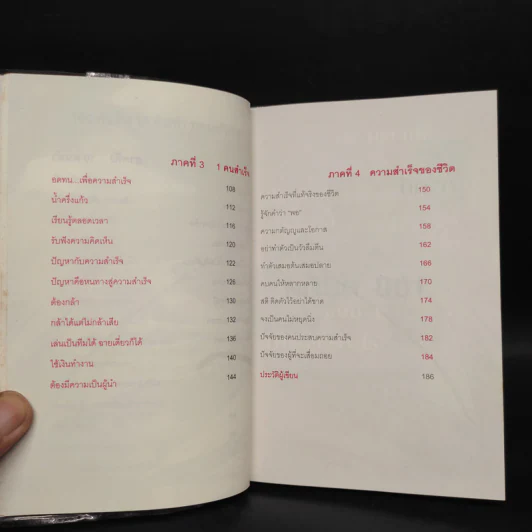 ภาคที่ 3 1 คนสำเร็จ
อดทน...เพื่อความสำเร็จ 108
น้ำครึ่งแก้ว 112
เรียนรู้ตลอดเวลา 116
รับฟังความคิดเห็น 120
ปัญหากับความสำเร็จ 122
ปัญหาคือหนทางสู่ความสำเร็จ 126
ต้องกล้า 130
กล้าได้แต่ไม่กล้าเสีย 132
เล่นเป็นทีมได้ ฉายเดี่ยวก็ได้ 136
ใช้เงินทำงาน 140
ต้องมีความเป็นผู้นำ 144
ภาคที่ 4 ความสำเร็จของชีวิต
ความสำเร็จที่แท้จริงของชีวิต 150
รู้จักคำว่า "พอ" 154
ความกตัญญูและโอกาส 158
อย่าทำตัวเป็นวัวลืมตีน 162
ทำตัวเสมอต้นเสมอปลาย 166
คบคนให้หลากหลาย 170
สติ ติดตัวไว้อย่าได้ขาด 174
จงเป็นคนไม่หยุดนิ่ง 178
ปัจจัยของคนประสบความสำเร็จ 182
ปัจจัยของผู้ที่จะเสื่อมถอย 184
ประวัติผู้เขียน 186